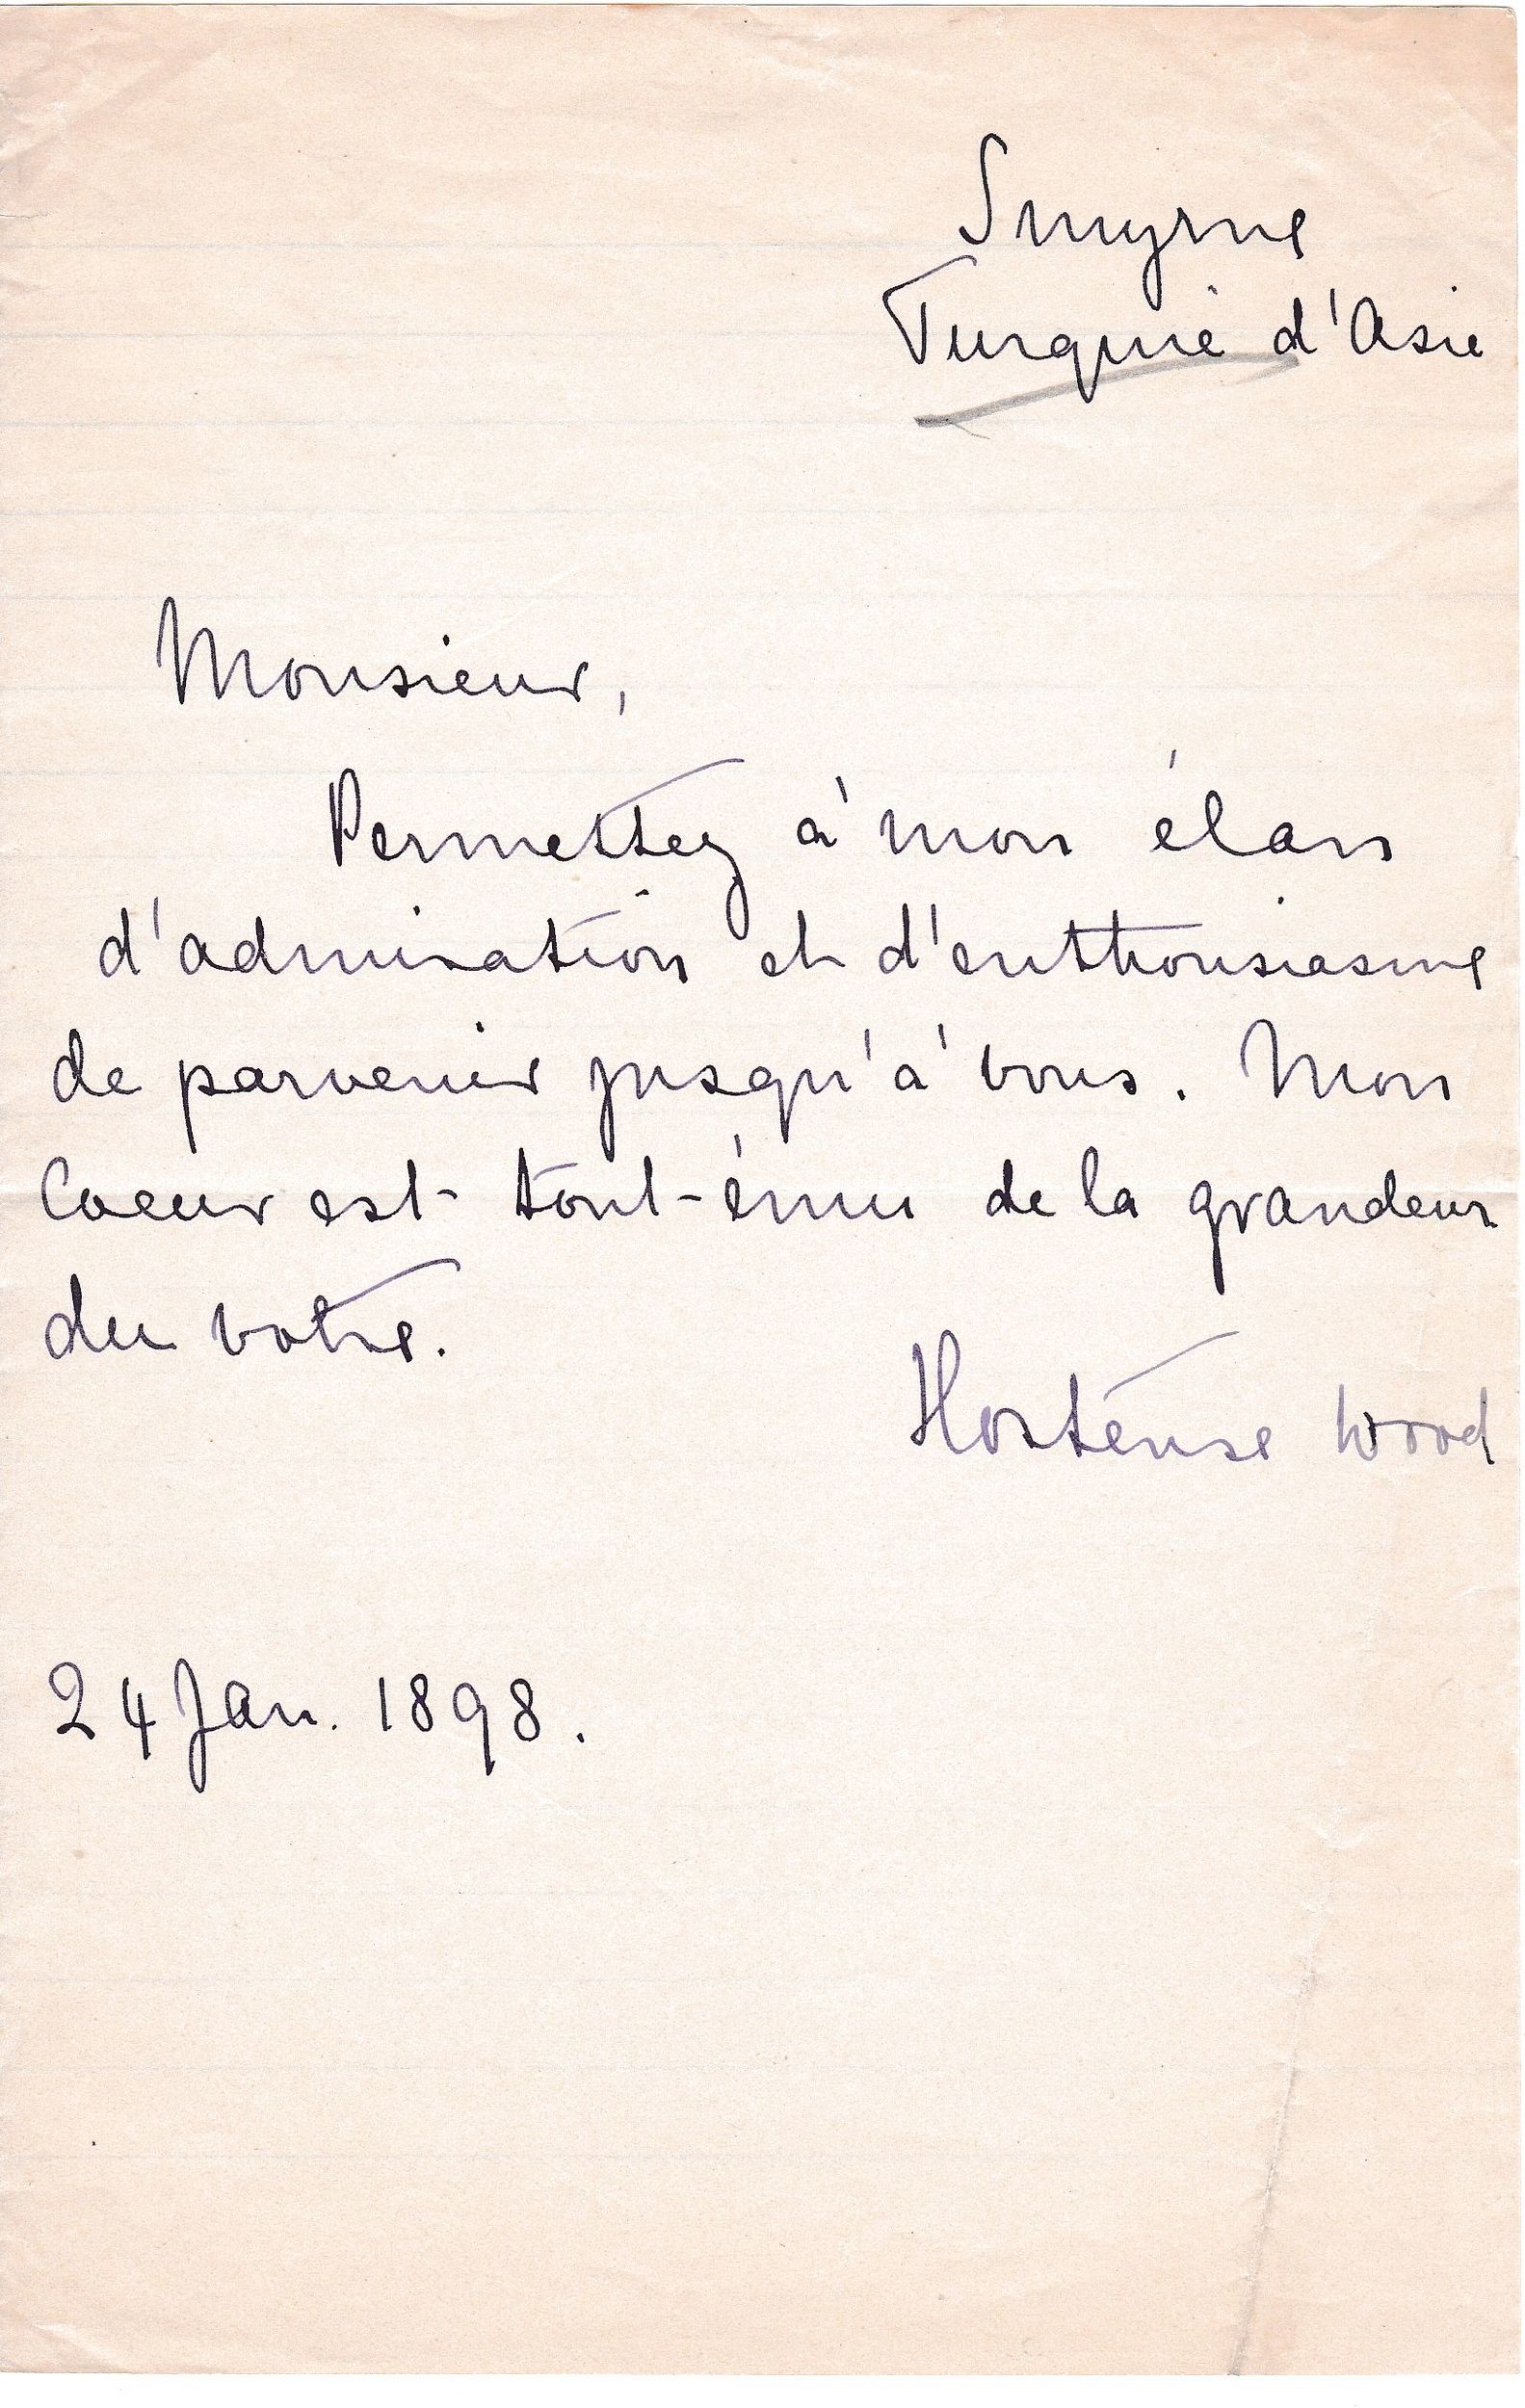 Smyrne
Turquie d'Asie
Monsieur,
Permettez à mon élan
d'admiration et d'enthousiasme
de parvenir jusqu'à vous. Mon
Coeur est tout-ému de la grandeur
du votre.
Hortense Wood
24 Jan. 1898.